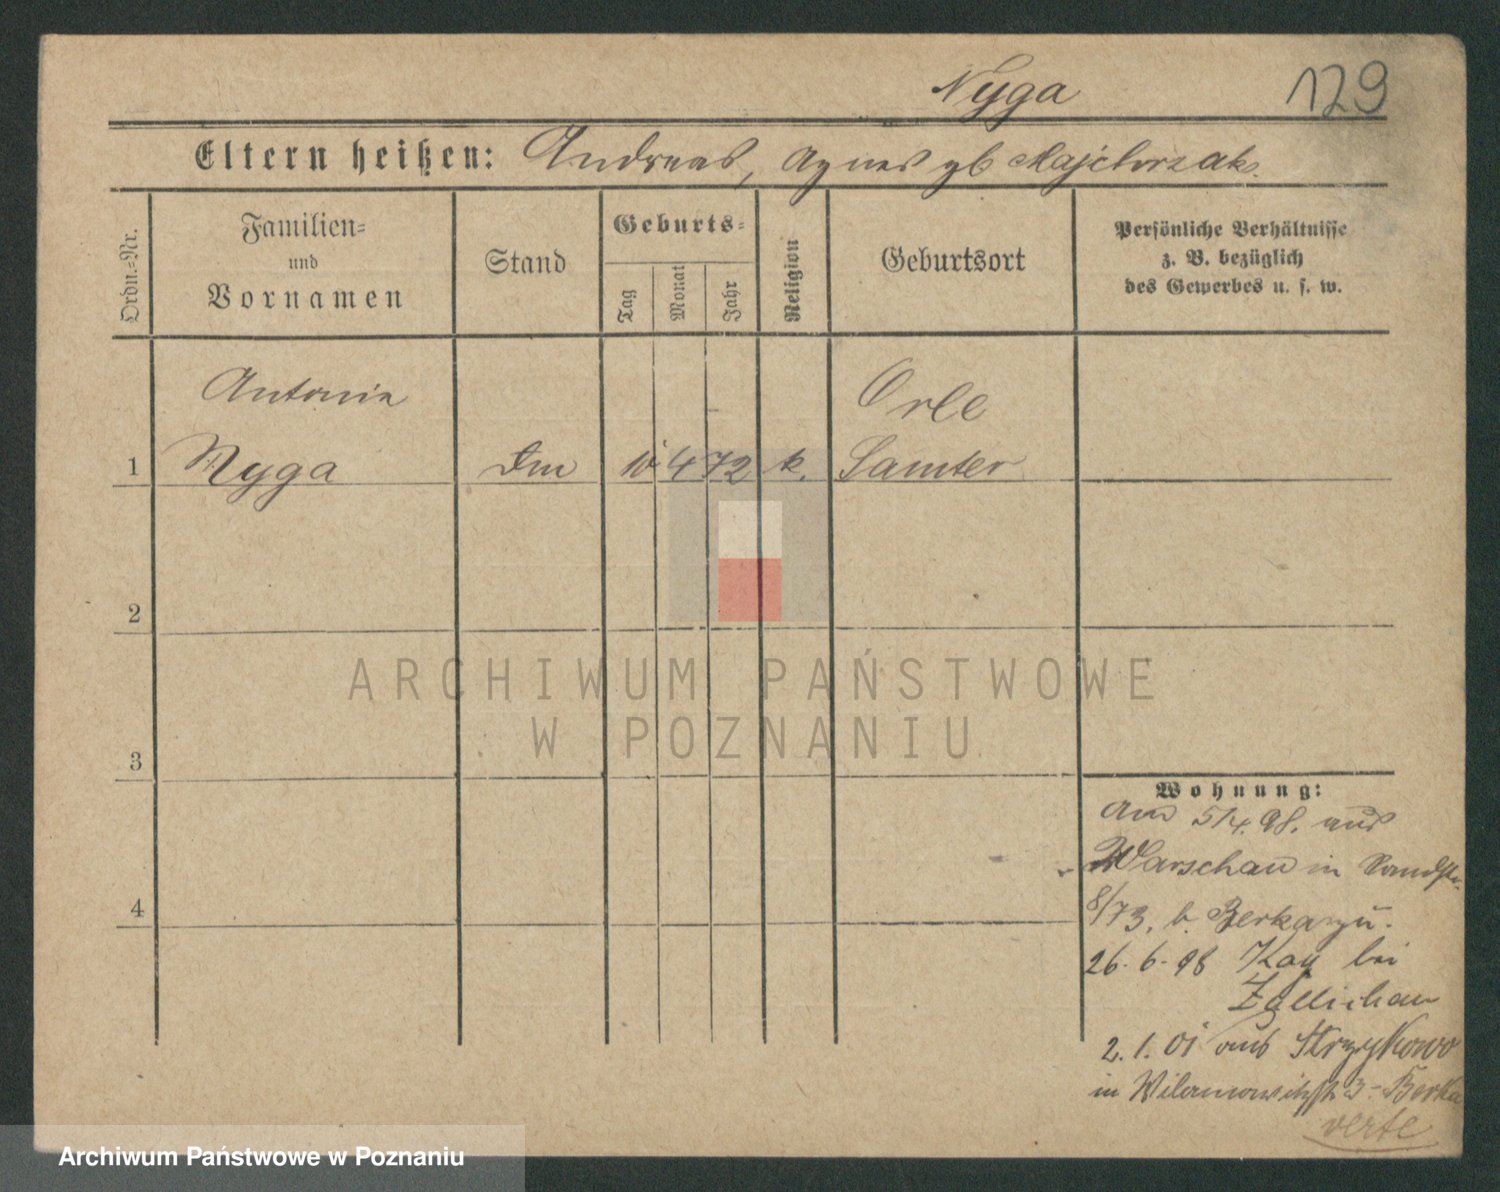 Nyga
129
Eltern heißen: Andreas, Agnes gb Majchrzak.
Ordn.-Nr.
Familien-
und
Vornamen
Stand
Geburts-
Tag
Monat
Jahr
Religion
Geburtsort
Persönliche Verhältnisse
z. B. bezüglich
des Gewerbes u. s. w.
Antonie Orle
1 Nyga 4 72 k. Samter
2
ARCHIWUM PAŃSTWOWE
W POZNANIU
3
4
Wohnung:
am 5/4. 98. aus
Warschau in
8/73, b.
26. 6. 98 Kay bei
Züllichau
2. 1. 01 aus Strzykowo
in Wilamowitzstr 3-
verte
Archiwum Państwowe w Poznaniu